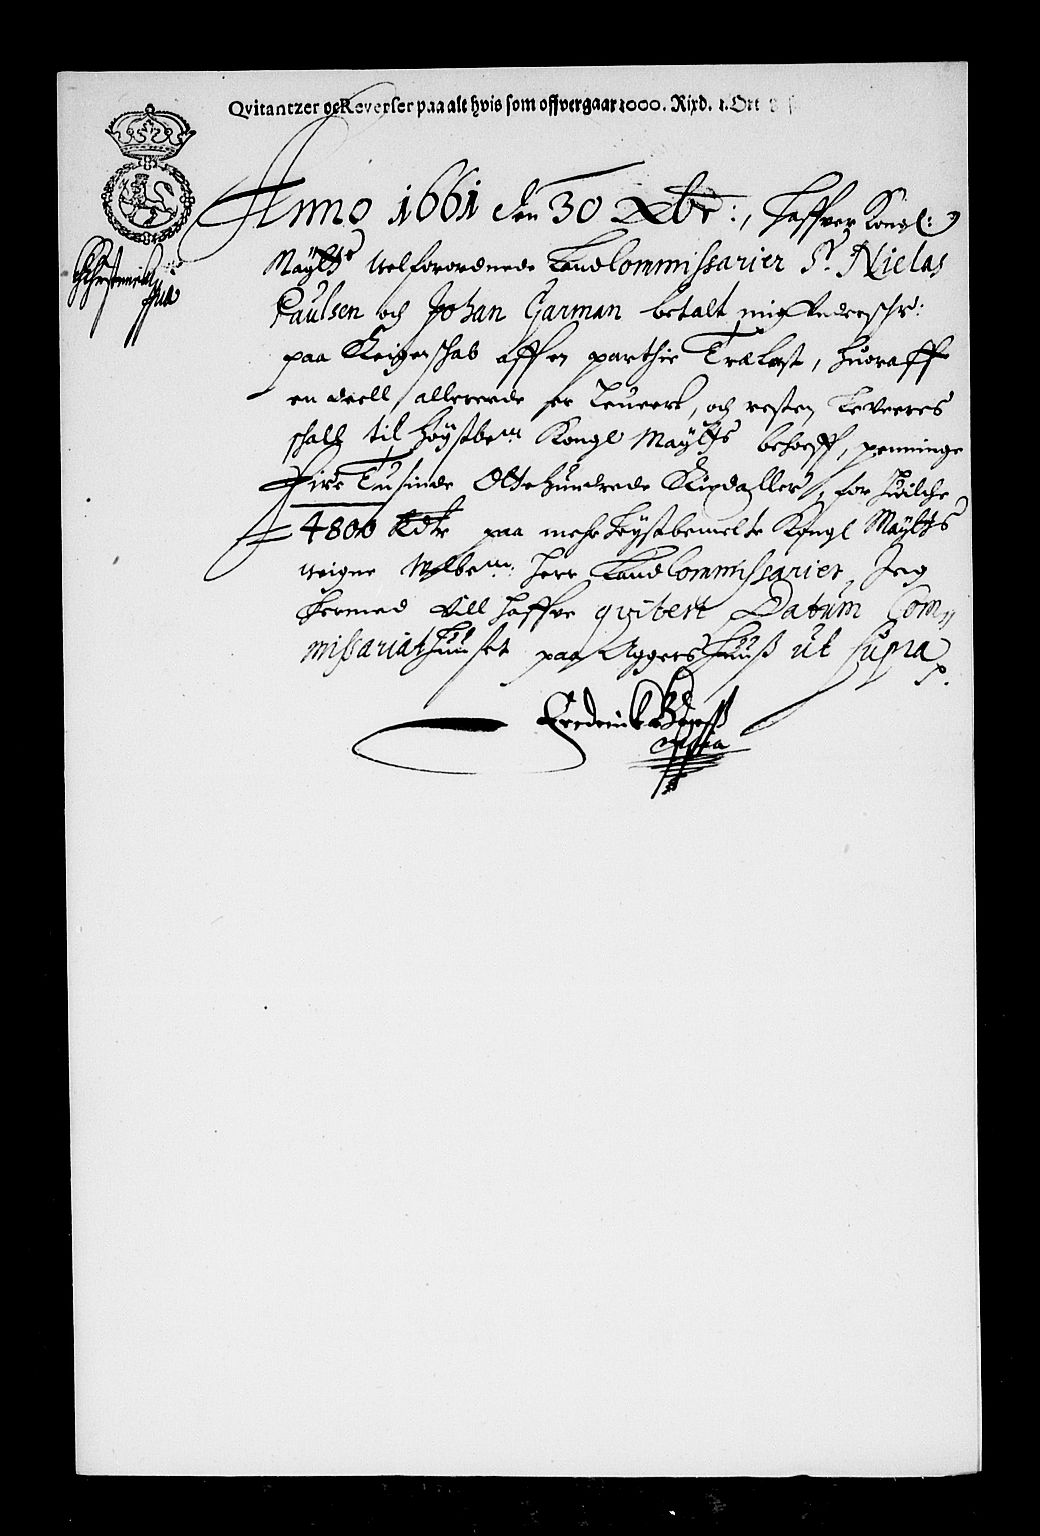 Qvitantzer og Reverser paa alt hvis som offvergaar 1000. Rixd. 1. Ort 8 ß
Anno 1661 den 30 Xbr:, haffver Kongl:
Maÿtts velforordnede Land Commissarier Sr. Nielas
Paulsen och Johan Garman betalt mig Underschr:
paa Reigenschab aff en parthie Trælast, huoraff
en deell allerede er Leuert, och resten Leveres
schall til høÿstbem: Kongl Maÿtts behoeff, penninge
Fire Tusinde Otte Hundrede Rixdaller, for huilche
4800 Rdr paa mehrhøÿstbemelte Kongl Maÿtts
weigne Welbem: Herr Land Commissarier, Jeg
hermed vill haffve qvitert Datum Com„
missariathuuset paa Aggershuuß ut supra
Frederick
mppia